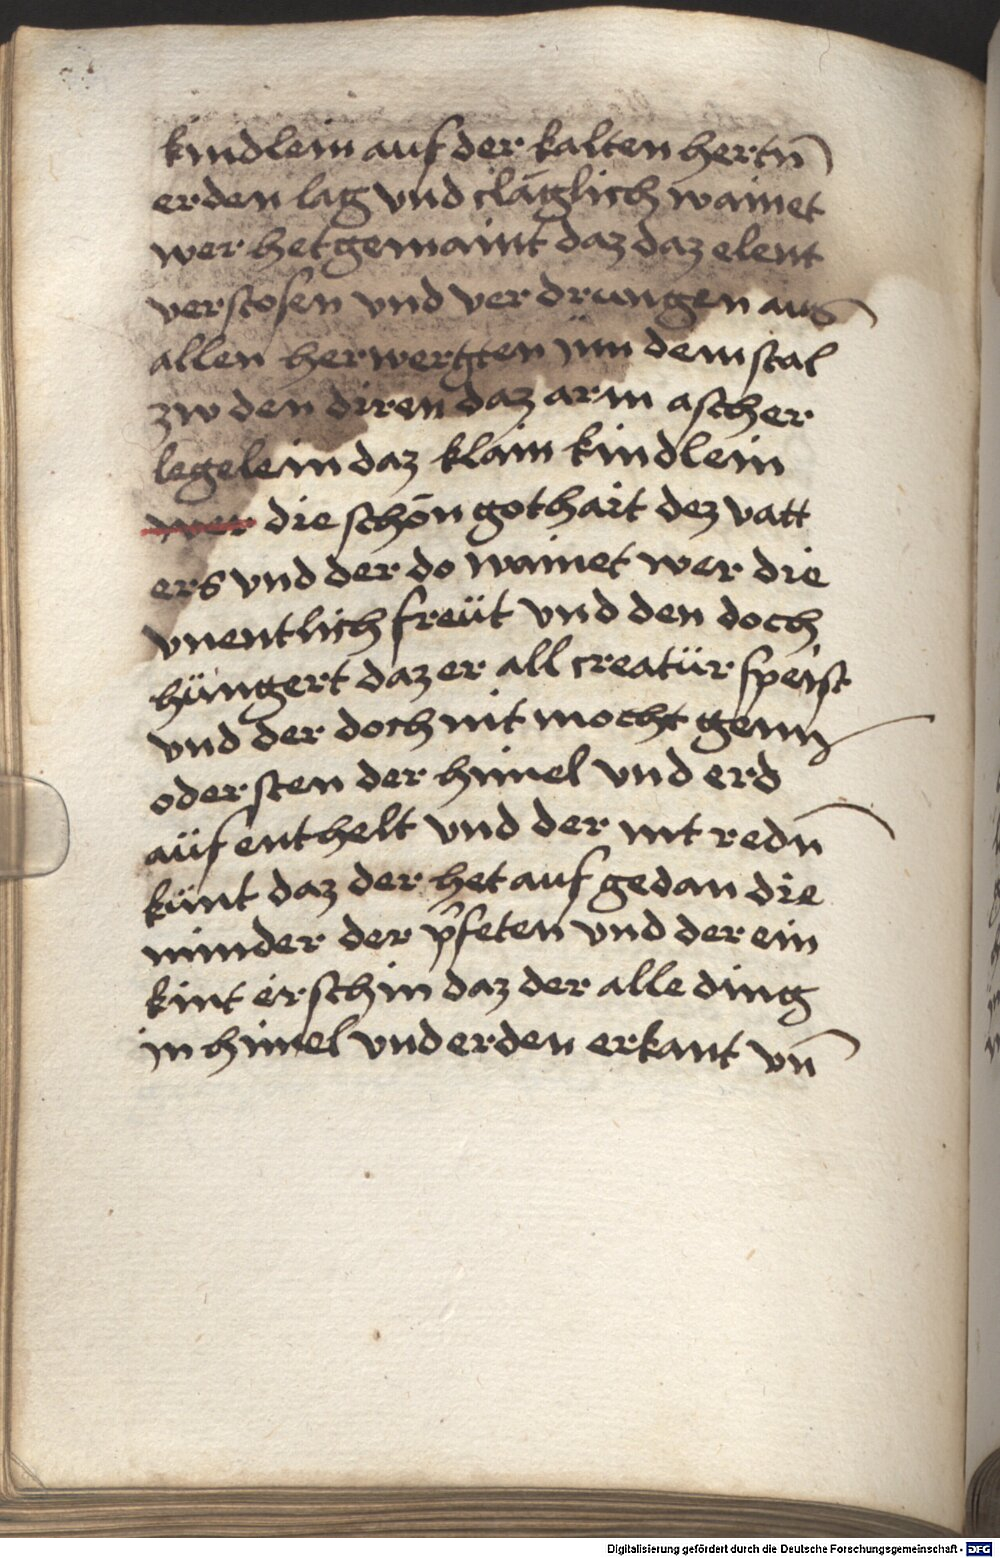 kindlein auf der kalten hertn̄
erden lag vnd cläglich wainet
wer het gemaint daz daz elent
verstosen vnd verdrungen aus
allen herwergten jnn dem stal
zw den diren daz arm ascher
legelein daz klain kindlein
wer die schön gothait dez vatt
ers vnd der do wainet wer die
vnentlich freüt vnd den doch
hüngert daz er all creatür speist
vnd der doch nit mocht genn
oder sten der himel vnd erd
aüf enthelt vnd der nit redn̄
künt daz der het auf gedan die
münder der p̄feten vnd der ein
kint erschin daz der alle ding
jn himel vnd erden erkant vn̄
Digitalisierung gefördert durch die Deutsche Forschungsgemeinschaft - DFG